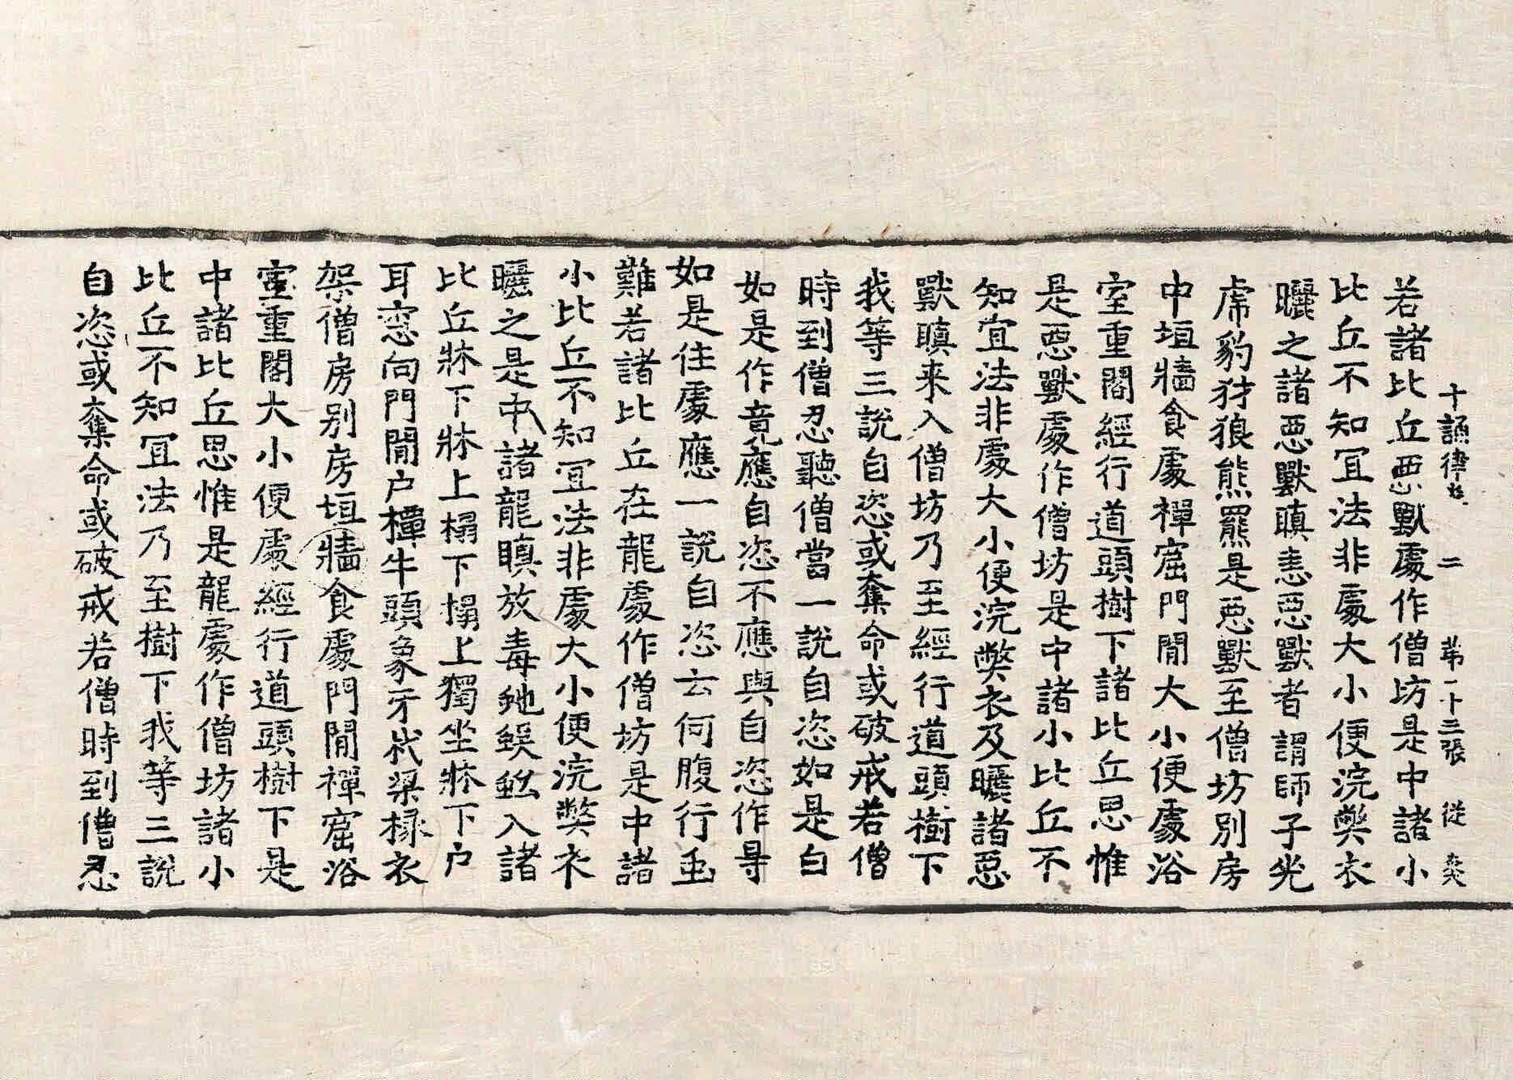 十誦律 二 第一十三張 從 癸
若諸比丘惡獸處作僧坊是中諸小
比丘不知冝法非處大小便浣弊衣
曬之諸惡獸瞋恚惡獸者謂師子兕
虎豹犲狼熊羆是惡獸至僧坊別房
中垣牆食處禪窟門閒大小便處浴
室重閣經行道頭樹下諸比丘思惟
是惡獸處作僧坊是中諸小比丘不
知冝法非處大小便浣弊衣及曬諸惡
獸瞋来入僧坊乃至經行道頭樹下
我等三說自恣或奪命或破戒若僧
時到僧忍聽僧當一說自恣如是白
如是作竟應自恣不應與自恣作㝵
如是住處應一說自恣云何腹行虫
難若諸比丘在龍處作僧坊是中諸
小比丘不知冝法非處大小便浣弊衣
曬之是中諸龍瞋放毒虵蜈蚣入諸
比丘牀下牀上榻下榻上獨坐牀下户
耳窓向門閒户橝牛頭象牙杙梁椽衣
架僧房別房垣牆食處門閒禪窟浴
室重閣大小便處經行道頭樹下是
中諸比丘思惟是龍處作僧坊諸小
比丘不知冝法乃至樹下我等三說
自恣或奪命或破戒若僧時到僧忍